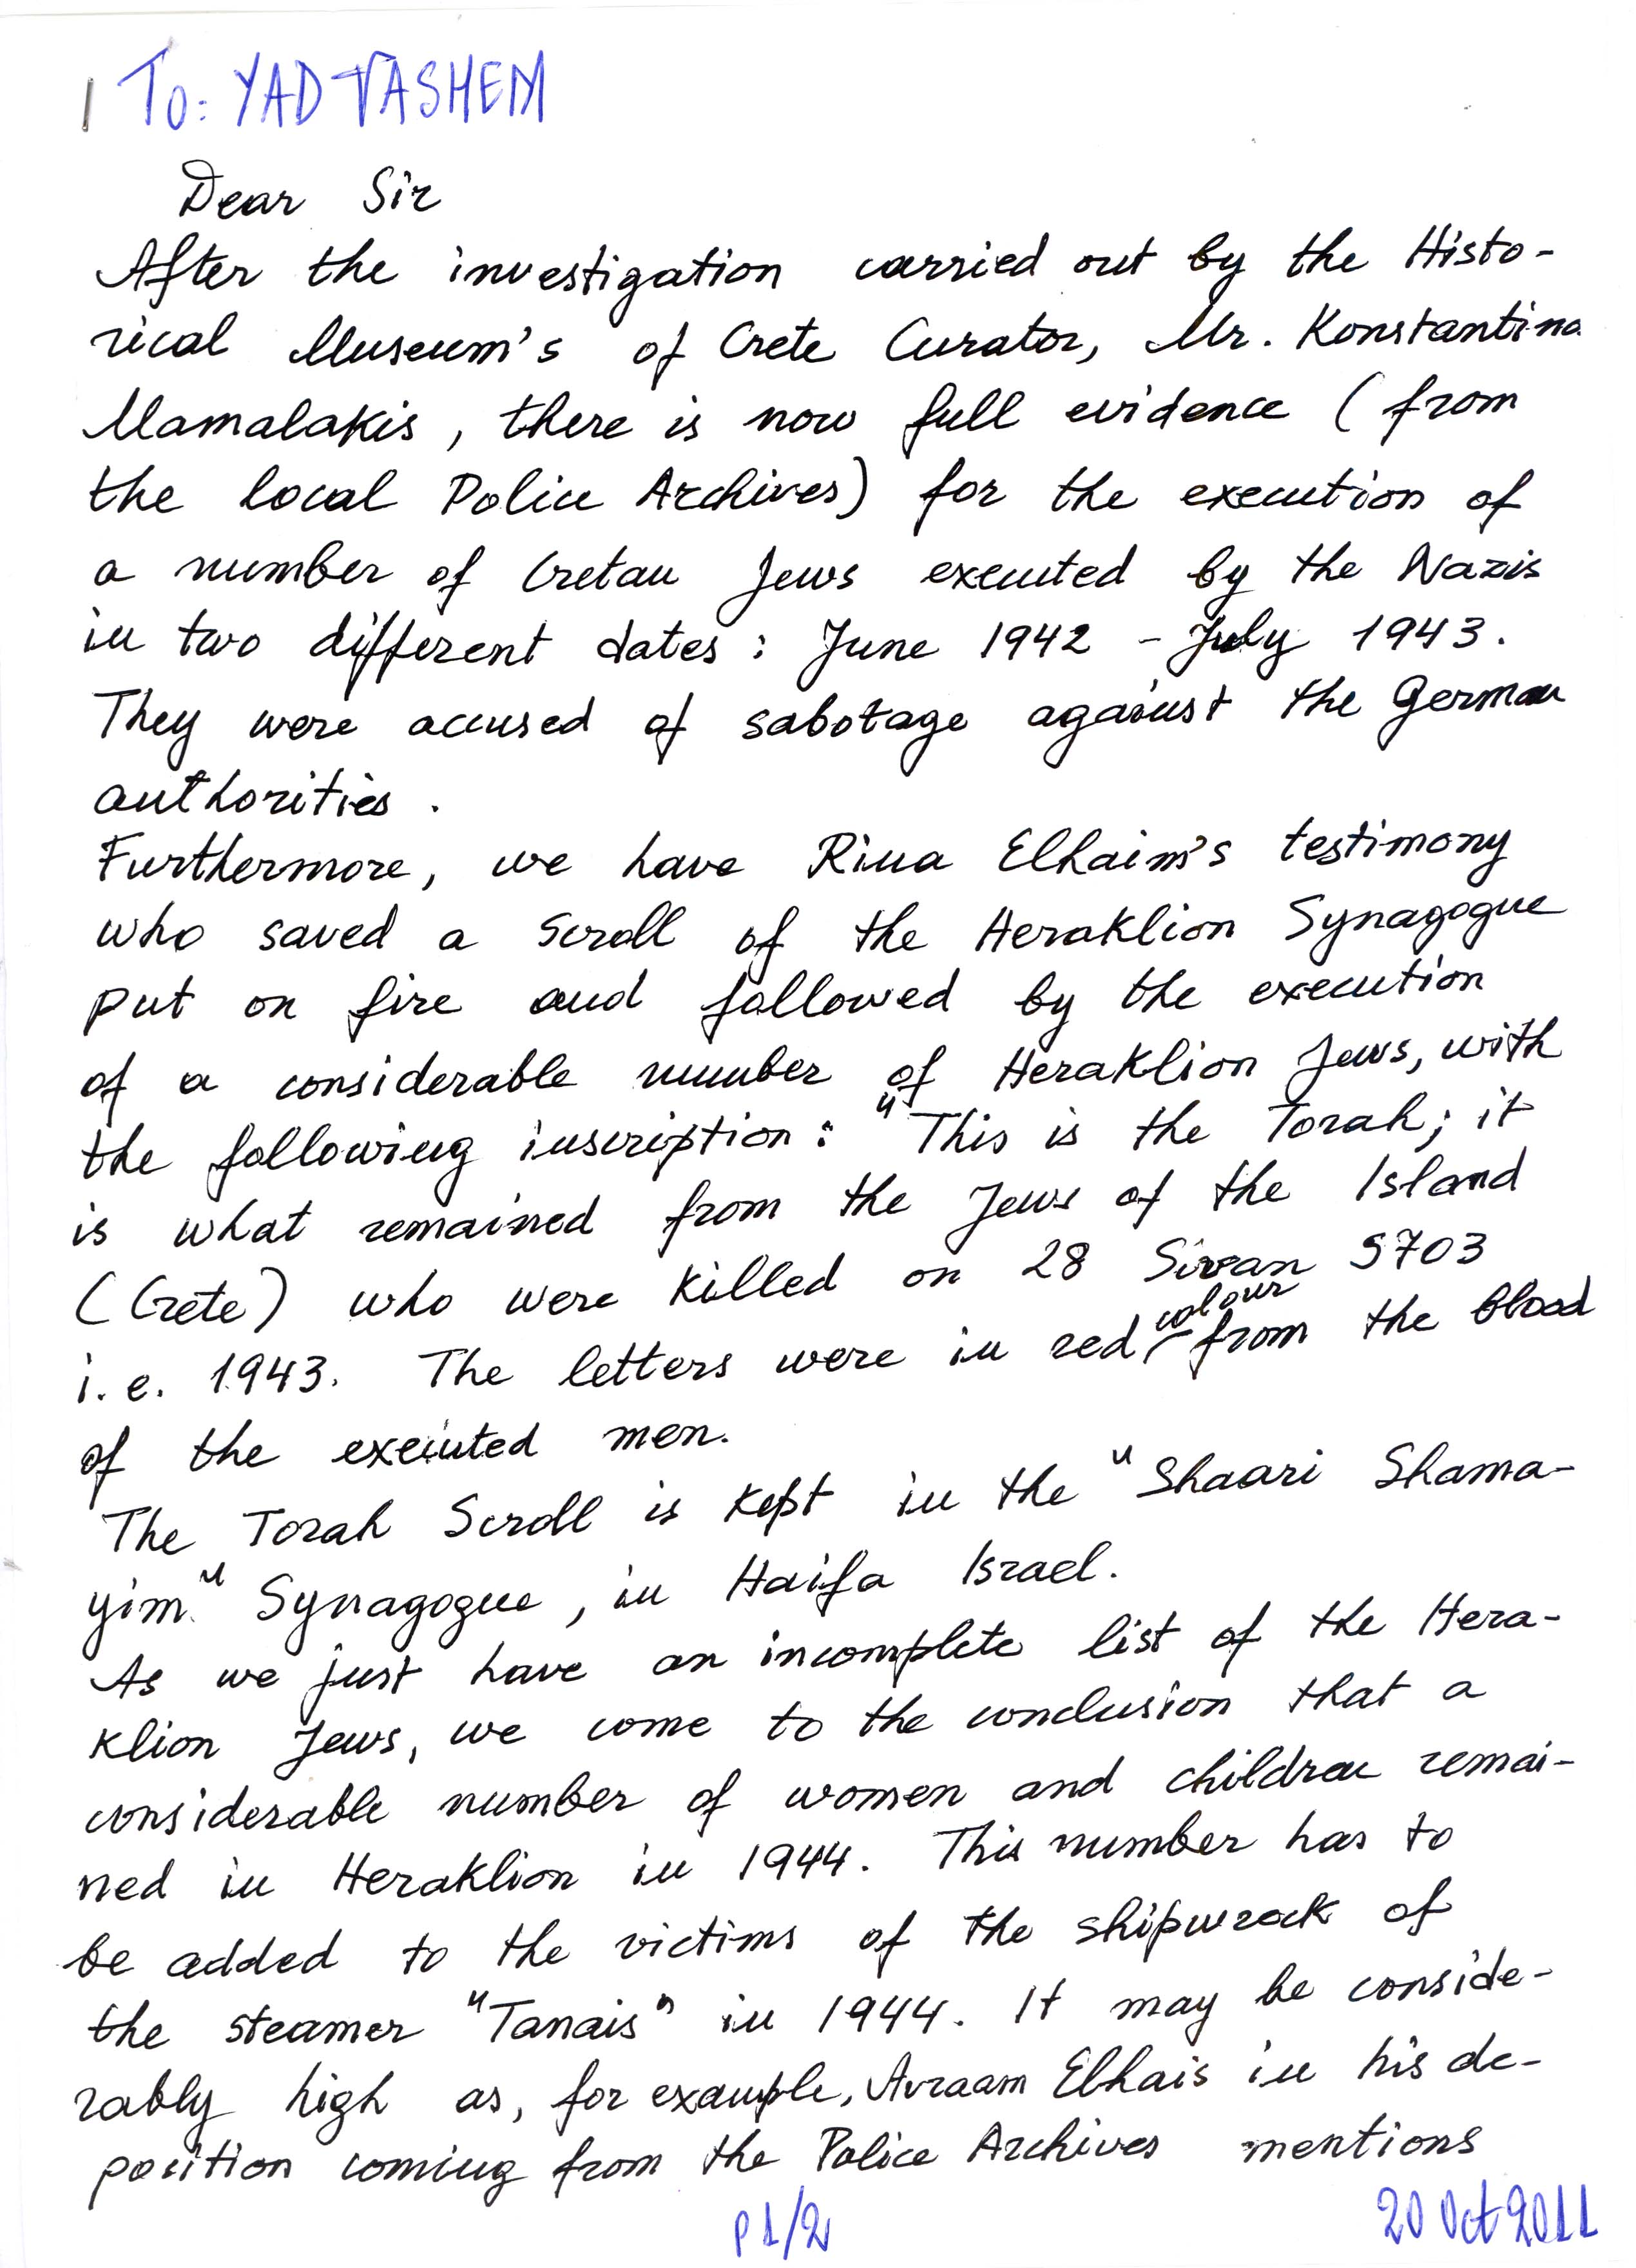 To: YAD VASHEM
Dear Sir
After the investigation carried out by the Histo-
rical Museum's of Crete Curator, Mr. Konstantino
Mamalakis, there is now full evidence (from
the local Police Archives) for the execution of
a number of Cretan Jews executed by the Nazis
in two different dates: June 1942 - July 1943.
They were accused of sabotage against the German
authorities.
Furthermore, we have Rina Elhaim's testimony
who saved a scroll of the Heraklion Synagogue
put on fire and followed by the execution
of a considerable number of Heraklion Jews, with
the following inscription: "This is the Torah; it
is what remained from the Jews of the Island
(Crete) who were killed on 28 Sivan 5703
i.e. 1943. The letters were in red colour from the blood
of the executed men.
The Torah Scroll is kept in the "Shaari Shama-
yim" Synagogue, in Haifa Israel.
As we just have an incomplete list of the Hera-
klion Jews, we come to the conclusion that a
considerable number of women and children remai-
ned in Heraklion in 1944. This number has to
be added to the victims of the shipwreck of
the steamer "Tanais" in 1944. It may be conside-
rably high as, for example, Avraam Elhais in his de-
position coming from the Police Archives mentions
P 1/2
20 Oct 2011